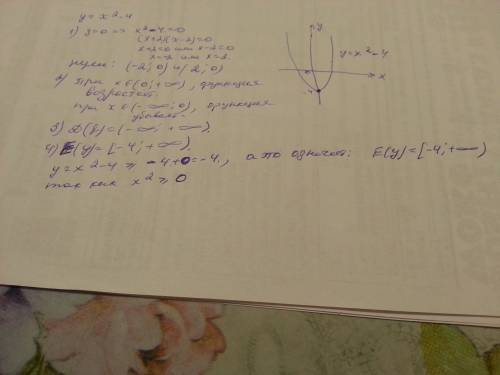 y = x²-4
1) y=0 => x²-4=0
(x+2)(x-2)=0
x+2=0 или x-2=0
x=-2 или x=2.
Нули: (-2; 0) и (2; 0)
2) При x∈(0; +∞), функция
возрастает.
при x∈(-∞; 0), функция
убывает.
3) D(y)=(-∞; +∞).
4) E(y)=[-4; +∞).
y=x²-4 ≥ -4+0=-4, а это означает: E(y)=[-4;+∞)
так как x² ≥ 0
y
y=x²-4
x